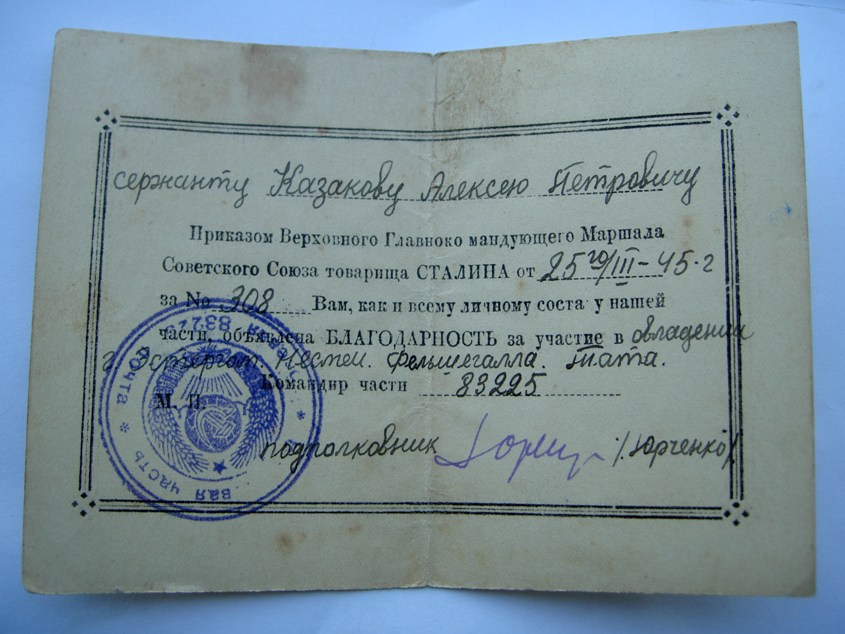 сержанту Казакову Алексею Петровичу
Приказом Верховного Главноко мандующего Маршала
Советского Союза товарища СТАЛИНА от 25го/III-45.г
за № 308 Вам, как и всему личному соста у нашей
части, объявлена БЛАГОДАРНОСТЬ за участие в овладении
г. Эстергом. Несмей. Фельшегалла. Тата.
Командир части 83225
М. П.
подполковник /Юрченко/
вая часть * почта *